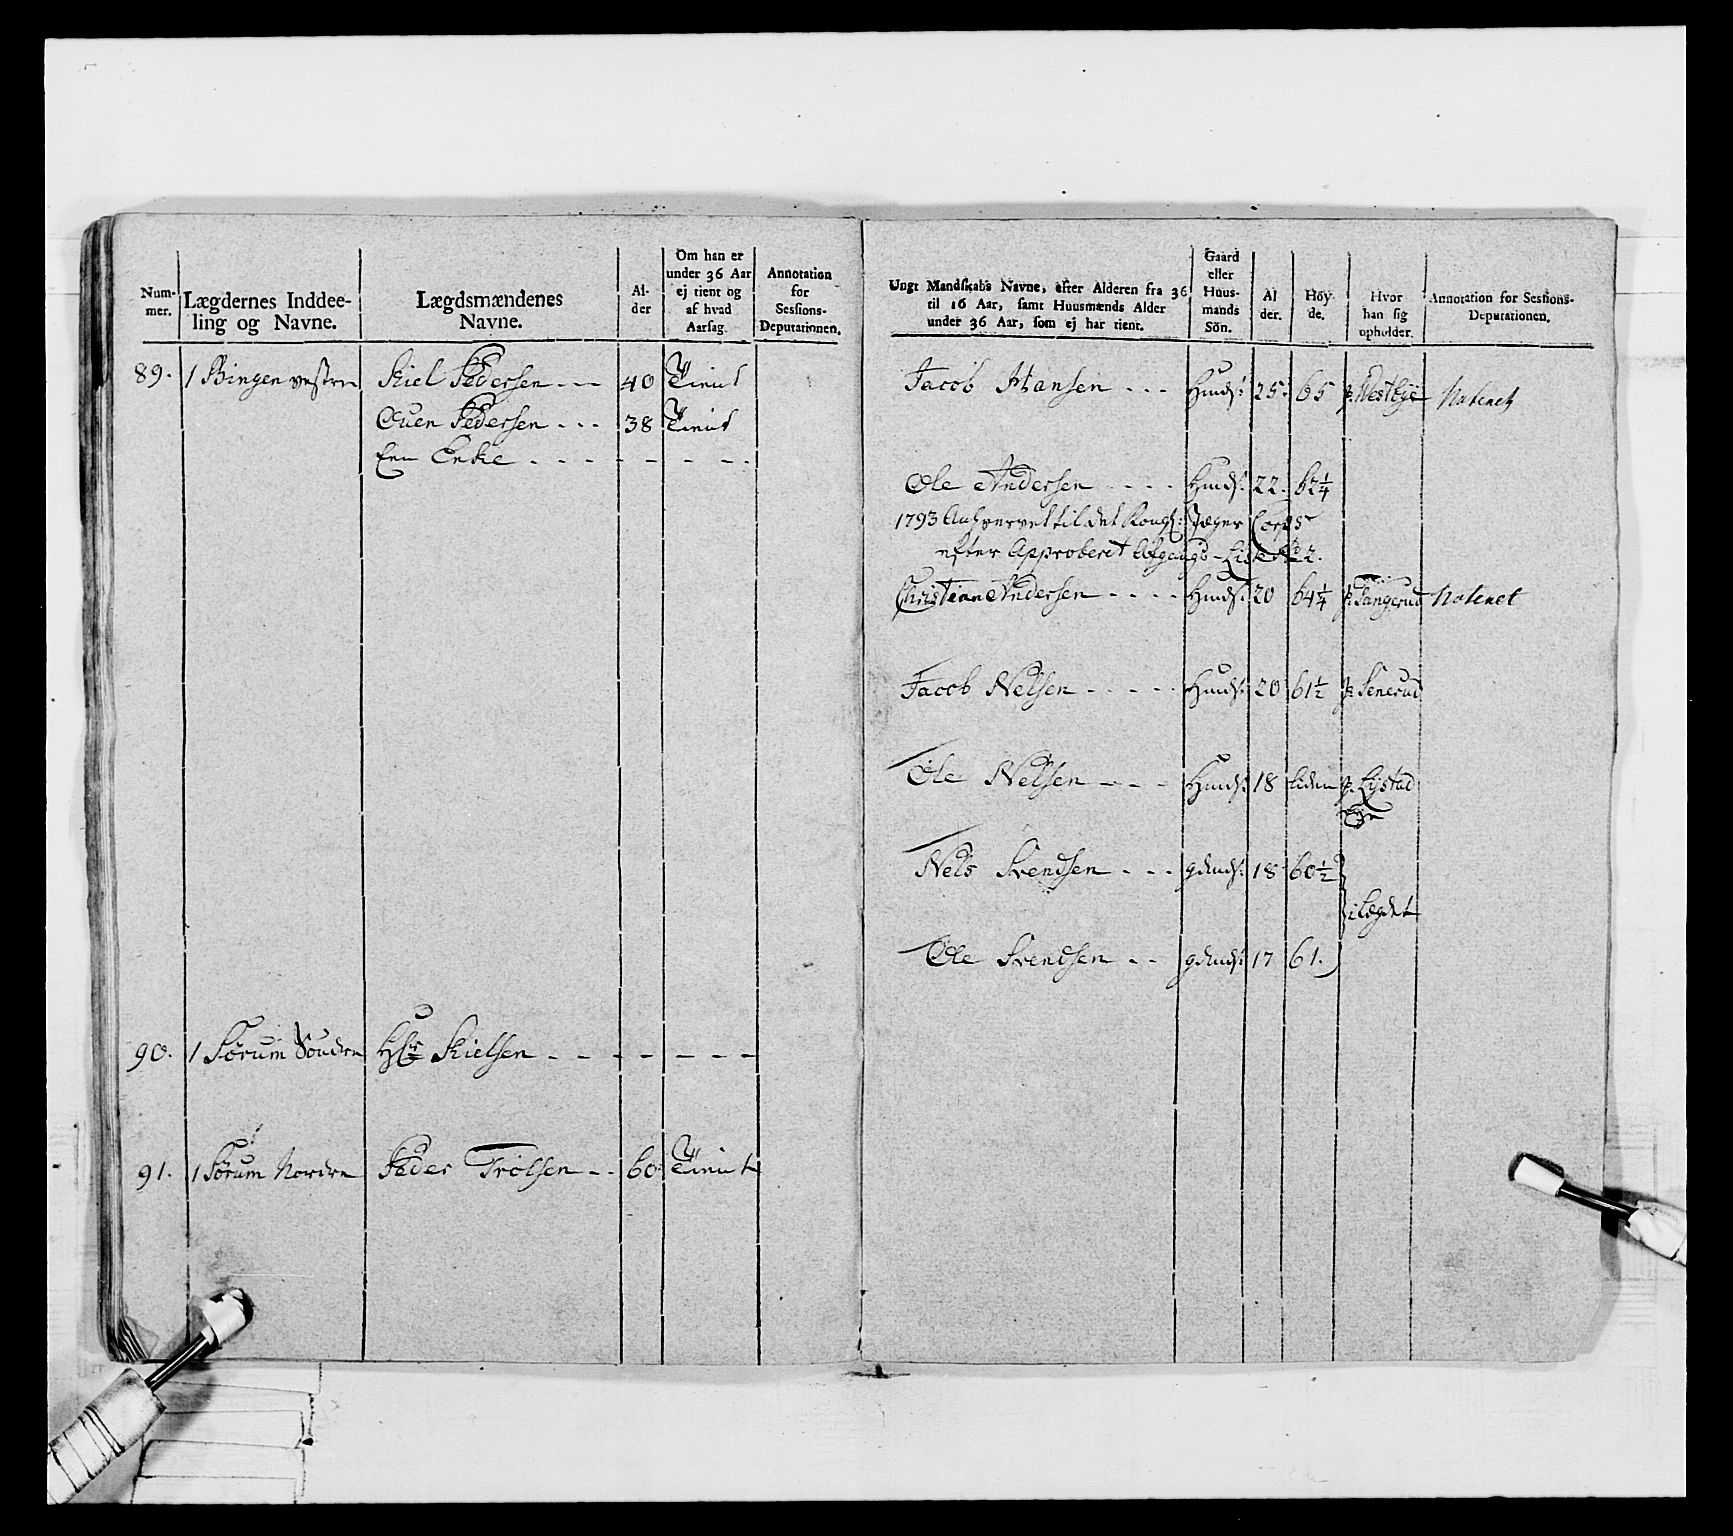 Num-
mer.
Lægdernes Inddee-
ling og Navne.
Lægdsmændenes
Navne.
Al-
der
Om han er
under 36 Aar
ej tient og
af hvad
Aarsag.
Annotation
for
Sessions-
Deputationen.
89. 1 Bingen vestre Kiel Pedersen - - - 40 Tient
Ouen Pedersen - - - 38 Tient
Een Enke - - - - - - -
90. 1 Sørum Søndre Hr Kielsen - - - - - -
91. 1 Sørum Nordre Peder Trolsen - - 60 Tient
Ungt Mandskabs Navne, efter Alderen fra 36
til 16 Aar, samt Huusmænds Alder
under 36 Aar, som ej har tient.
Gaard
eller
Huus-
mands
Sön.
Al
der.
Höy-
de.
Hvor
han sig
opholder.
Annotation for Sessions-
Deputationen.
Jacob Hansen - - - Hmds: 25 65 p. Westbye Noteret
Ole Andersen - - - - Hmds: 22. 62¼
1793 Anhvervet til det Kongl: Jæger Corps
efter Approberet Afgangs-Liste No 2.
Christian Andersen - - - - Hmds: 20 64¼ p. Tangerud Noteret
Jacob Nelsen - - - - - Hmds: 20 61½ p. Senerud
Ole Nelsen - - - Hmds: 18 liden p. Lystad
Eje
Nels Svendsen - - - gdmds: 18 60½
i Legdet
Ole Svendsen - - gdmds: 17 61.